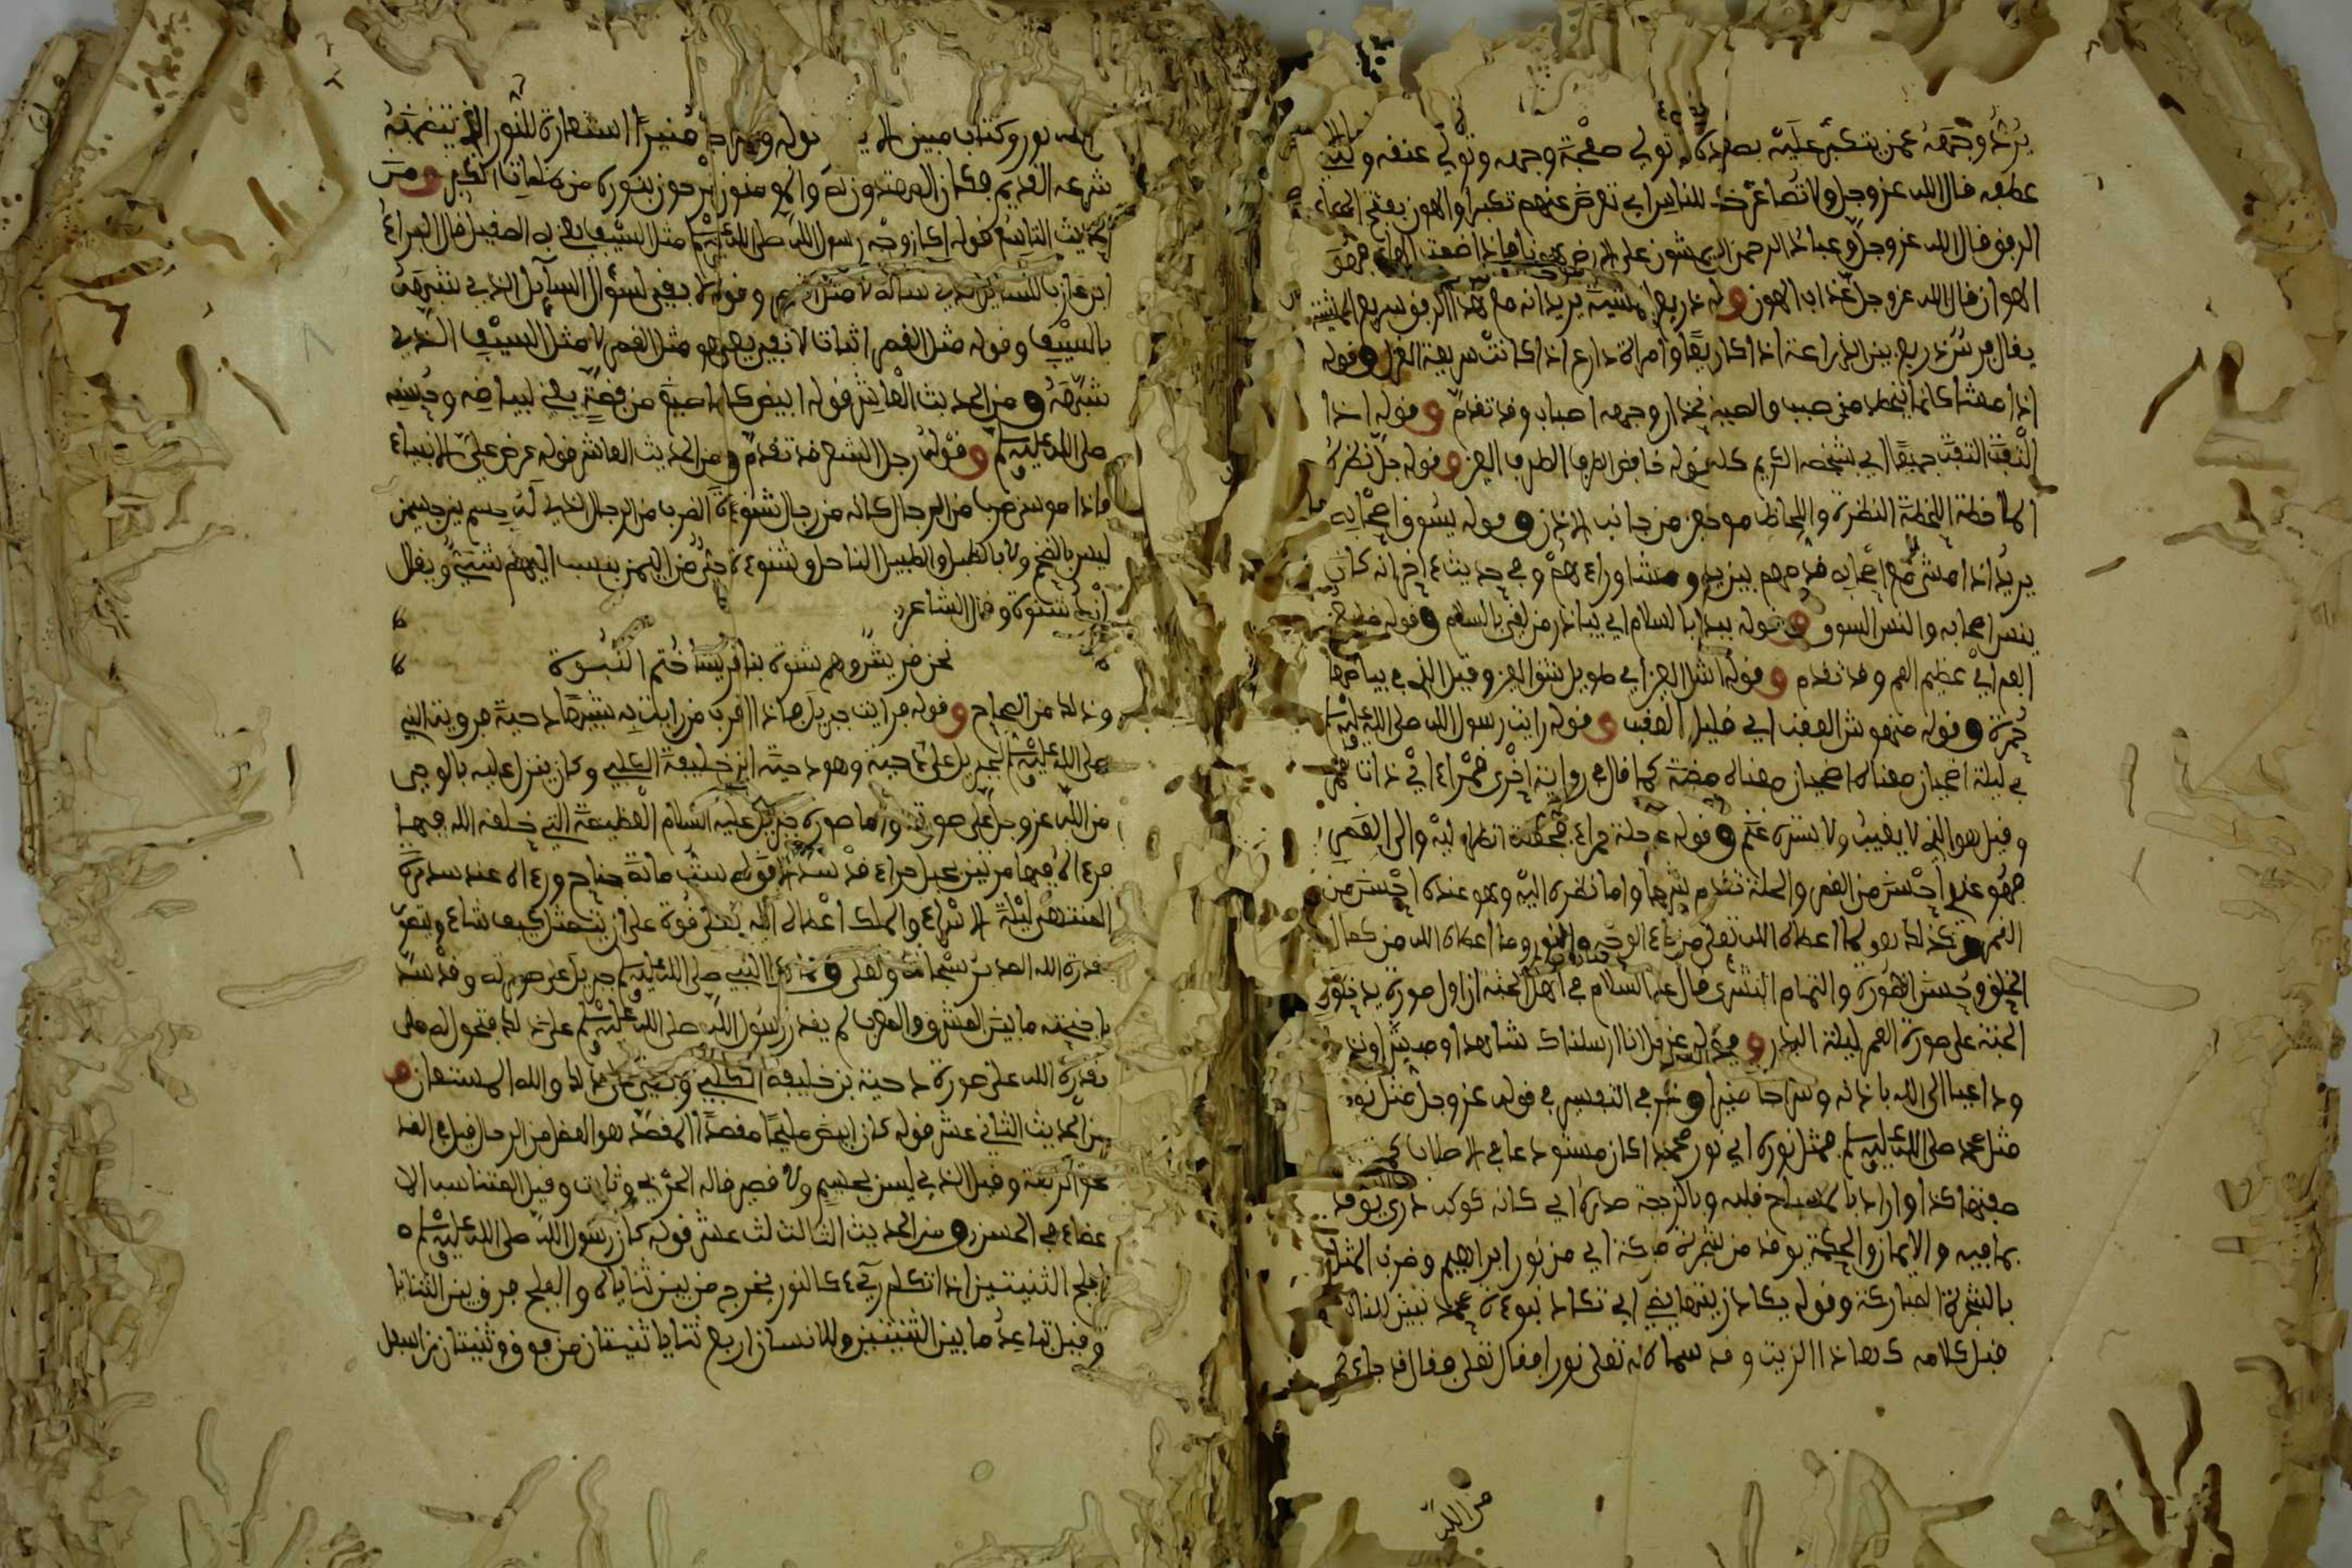 يريد وجهه عمن يتكبر عليه بصده تولي صفحة وجهه وتولي عنقه و
عطفه قال الله عز وجل ولا تصاعر خدك للناس اي تعرض عنهم تكبرا والهون بفتح الهاء
الرفق قال الله عز وجل وعباد الرحمن الذين يمشون على الارض هونا فاذا ضمت الهاء فهو
الهوان قال الله عز وجل عذاب الهون وقوله ذريع المشية يريد انه مع هذا الرفق سريع المشية
يقال فرس ذريع بين الذراعة اذا كان سريعا وامراة ذارع اذا كانت سريعة الغزل وقوله
اذا مشا كانما ينحط من صبب والصبب انحدار وجمعه اصباب وقد تقدم وقوله اذا
التفت التفت جميعا اي بشخصه الكريم كله قوله خافض الطرف الطرف العين وقوله جل نظره
الملاحظة اللحظة النظرة واللحاظ موخر من جانب الاذن وقوله يسوق اصحابه
يريد اذا مشى مع اصحابه قدمهم بين يديه ومشا وراءهم وفي حديث ءاخر انه كان
ينس اصحابه والنس السوق وقوله يبدا بالسلام اي يبادر من لقي بالسلام وقوله ضليع
الفم اي عظيم الفم وقد تقدم وقوله اشكل العين اي طويل شق العين وقيل الذي في بياضها
حمرة وقوله منهوش العقب اي قليل العقب وقوله رايت رسول الله صلى الله عليه وسلم
في ليلة اضحيان معناه اضحيان معناه مضية كما قال في رواية اخرى قمراء اي ذات قمر
وقيل هو الذي لا يغيب ولا يستره غيم وقوله في حلة حمراء فجعلت انظر اليه والى القمر
فهو عندي احسن من القمر والحلة تقدم شرحها واما نظره اليه وهو عنده احسن من
القمر وكذلك هو لما اعطاه الله تعلى من بهاء الوجه والنور وما اعطاه الله من كمال
الخلق وحسن الصورة والتمام البشرى قال عليه السلام في اهل الجنة ان اول صورة يدخلون
الجنة على صورة القمر ليلة البدر وفي قوله عز وجل انا ارسلناك شاهدا ومبشرا ونذيرا
وداعيا الى الله باذنه وسراجا منيرا وذكر في التفسير في قوله عز وجل مثل نوره
مثل محمد صلى الله عليه وسلم فمثل نوره اي نور محمد اذ كان مستودعا في الاصلاب كمشكاة
صفتها كذا واراد بالمصباح قلبه وبالزجاجة صدره اي كانه كوكب دري يوقد
بما فيه والايمان والحكمة يوقد من شجرة مباركة اي من نور ابراهيم وضرب المثل
بالشجرة المباركة وقوله يكاد زيتها يضيء اي تكاد نبوءة محمد تبين للناس
قبل كلامه كهاذا الزيت وقد سماه الله تعلى نورا فقال تعلى فقال قد جاءكم
من الله
من الله نور وكتاب مبين الاية وقوله وسراجا منيرا استعارة للنور الذي يتضمنه
شرعه القديم فكان المهتدون به والمومنون يخرجون بنوره من ظلمات الكفر ومن
الحديث التاسع قوله اكان وجه رسول الله صلى الله عليه وسلم مثل السيف يعني به الصقيل قال البراء
ابن عازب للسائل الذي ساله لا مثل القمر وقوله لا ينفي لسؤال السائل الذي شبهه
بالسيف وقوله مثل القمر اثباتا لا نفي يعني هو مثل القمر لا مثل السيف الذي
شبهه ومن الحديث العاشر قوله ابيض كانما صيغ من فضة يعني لبياضه وحسنه
صلى الله عليه وسلم وقوله رجل الشعر قد تقدم ومن الحديث العاشر قوله عرض علي الانبياء
فاذا موسى ضرب من الرجال كانه من رجال شنوءة الضرب من الرجال الذي له جسم بين جسمين
ليس بالضخم ولا بالطبل والطبيل الناحل وشنوءة حي من اليمن ينسب اليهم شنئي ويقال
ازد شنوة وقال الشاعر
نحن قريش وهم شنوة بنا قريشا ختم النبوة
وذلك من الصحاح وقوله فرايت جبريل فاذا اقرب من رايت به شبها دحية هو ويت النبي
صلى الله عليه وسلم لجبريل على دحية وهو دحية ابن خليفة الكلبي وكان ينزل عليه بالوحي
من الله عز وجل على صورته واما صورة جبريل عليه السلام العظيمة التي خلقه الله فيها
فرءاه فيها مرتين بجبل حراء قد سد الافق له ست مائة جناح ورءاه عند سدرة
المنتهى ليلة الاسراء والملك اعطاه الله تعلى قوة على ان يتمثل كيف شاء وتنفذ
قدرة الله العزيز سبحانه وتعلى وقد رءا النبي صلى الله عليه وسلم جبريل على صورته وقد سد
باجنحته ما بين المشرق والمغرب لم يقدر رسول الله صلى الله عليه وسلم على ذلك فتحول له ملى
بقدرة الله على صورة دحية بن خليفة الكلبي وبقي على ذلك والله المستعان و
من الحديث الثاني عشر قوله كان ابيض مليحا مقصدا المقصد هو القصد من الرجال قيل في القد
نحو الربعة وقيل الذي ليس بجسيم ولا قصير قاله الحربي وثابت وقيل المتناسب الا
عضاء في الحسن ومن الحديث الثالث عشر قوله كان رسول الله صلى الله عليه وسلم
افلج الثنيتين اذا تكلم رءي كالنور يخرج من بين ثناياه والفلج فرق بين الثنايا
وقيل تباعد ما بين الثنيتين وللانسان اربع ثنايا ثنيتان من فوق وثنيتان من اسفل